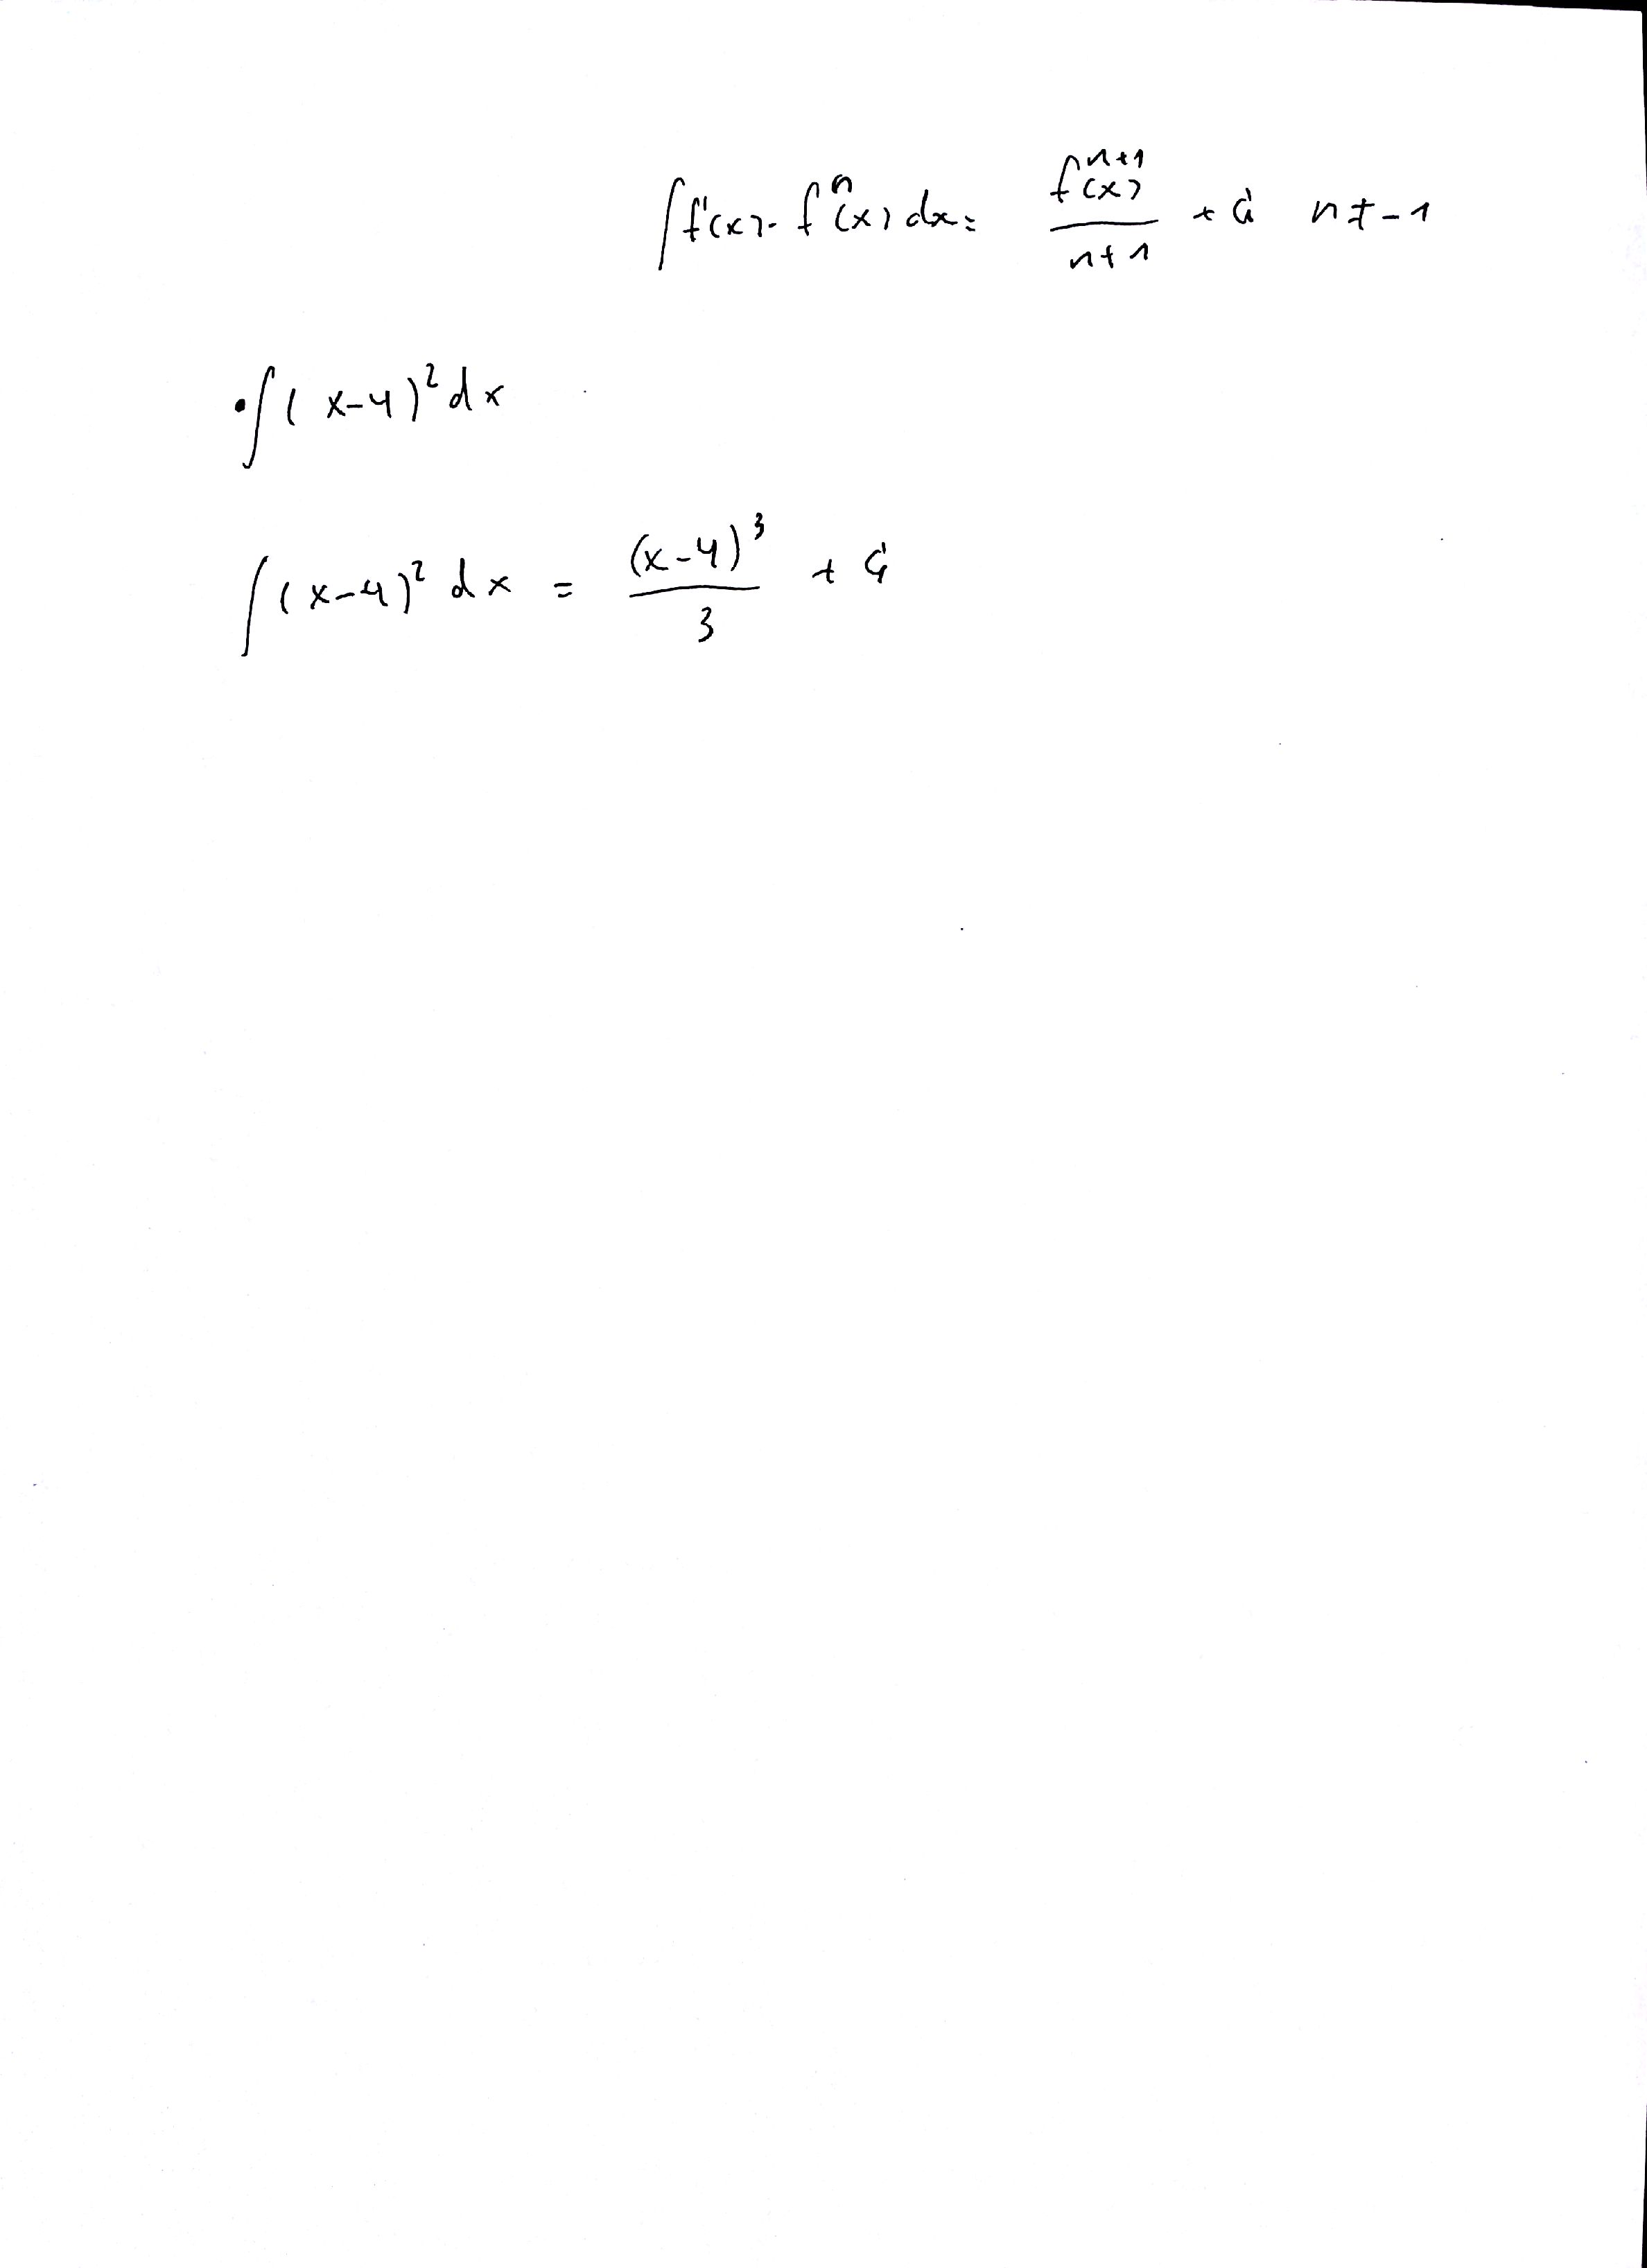 ∫f'(x)·fⁿ(x)dx = fⁿ⁺¹(x)/(n+1) + C₁ n≠-1
•∫(x-4)²dx
∫(x-4)²dx = (x-4)³/3 + C₁